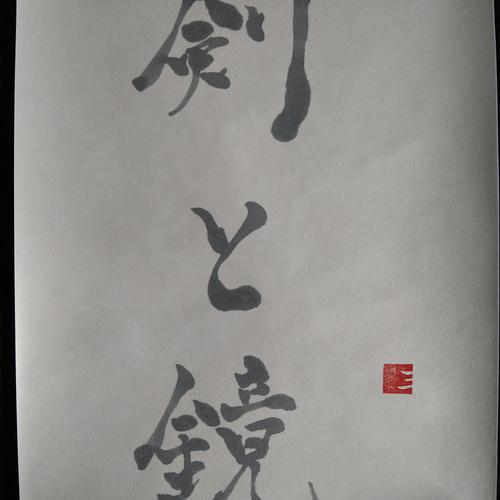 剣と鏡